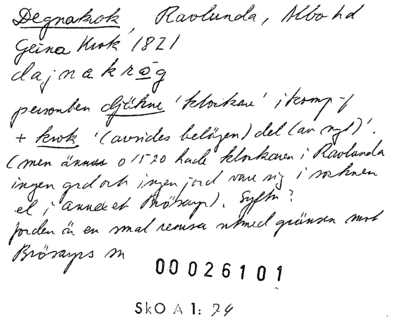 Degnakrok, Ravlunda, Albo hd
Geina Krok 1821
dajnakrog
personben djäkne 'klockare' i komp-f
+ krok '(avsides belägen) del (av ngt)'.
(men ännu o 1520 hade klockaren i Ravlunda
ingen gård och ingen jord vare sig i socknen
el i annexet Brösarp). Syftn?
Jorden är en smal remsa utmed gränsen mot
Brösarps sn
00026101
SkO A 1: 74